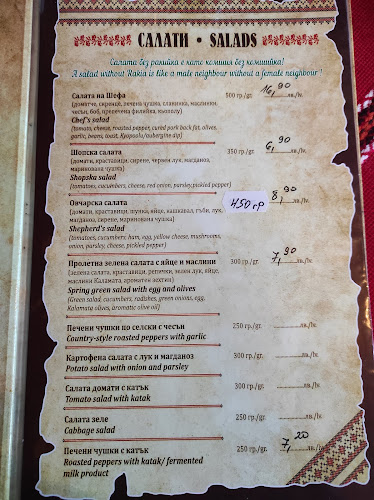 САЛАТИ • SALADS
Салата без ракийка е като комшия без комшийка!
A salad without Rakia is like a male neighbour without a female neighbour!
Салата на Шефа 500 гр./gr. 16,90 лв./lv.
(домати, сирене, печена чушка, сланина, маслини,
чесън, боб, препечена филийка, кьополу)
Chef's salad
(tomato, cheese, roasted pepper, cured pork back fat, olives,
garlic, beans, toast, Kyopoolu/aubergine dip)
Шопска салата 350 гр./gr. 6,90 лв./lv.
(домати, краставици, сирене, червен лук, магданоз,
маринована чушка)
Shopska salad
(tomatoes, cucumbers, cheese, red onion, parsley, pickled pepper)
Овчарска салата 450 гр 8,90 лв./lv.
(домати, краставици, шунка, яйце, кашкавал, гъби, лук,
магданоз, сирене, маринована чушка)
Shepherd's salad
(tomatoes, cucumbers, ham, egg, yellow cheese, mushrooms,
onion, parsley, cheese, pickled pepper)
Пролетна зелена салата с яйце и маслини 300 гр./gr. 7,90 лв./lv.
(зелена салата, краставици, репички, зелен лук, яйце,
маслини Каламата, ароматен зехтин)
Spring green salad with egg and olives
(Green salad, cucumbers, radishes, green onions, egg,
Kalamata olives, aromatic olive oil)
Печени чушки по селски с чесън 250 гр./gr. лв./lv.
Country-style roasted peppers with garlic
Картофена салата с лук и магданоз 300 гр./gr. лв./lv.
Potato salad with onion and parsley
Салата домати с катък 300 гр./gr. лв./lv.
Tomato salad with katak
Салата зеле 250 гр./gr. лв./lv.
Cabbage salad
Печени чушки с катък 250 гр./gr. 7,20 лв./lv.
Roasted peppers with katak/ fermented
milk product